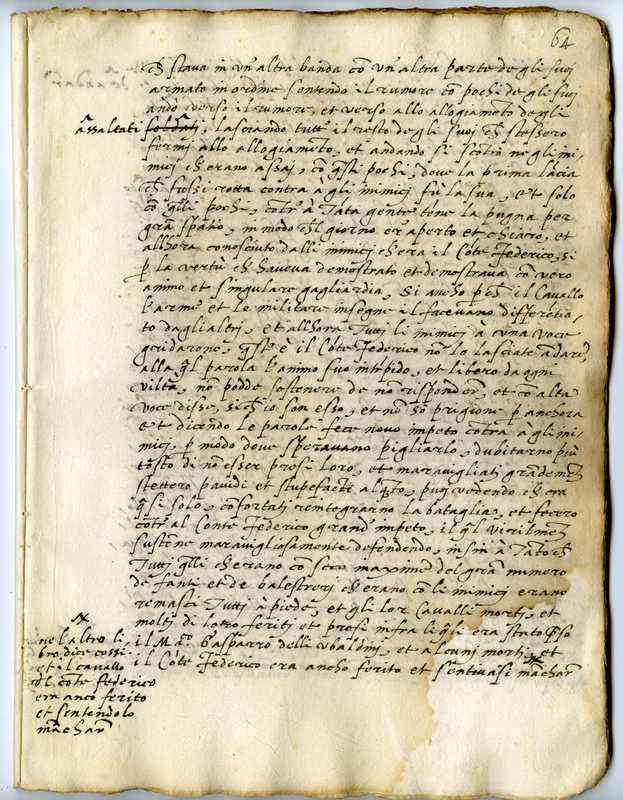 64
ch̃ stava in un'altra banda cõ un'altra parte de gli suoj
armato in ordine sentendo il rumore cõ pochi de gli suoi
andò verso il rumore, et verso allo allogiamẽto de gli
assaltati soldati, lasciando tutt' il resto de gli suoj ch̃ stessero
fermj allo allogiamẽto, et andando si scõtrò ne gli ini-
micj ch'erano assaj, cõ q̃sti pochj, dove la prima lãcia
ch̃ fussi rotta contra à gli inimicj fù la sua, et solo
cõ q̃lli pochi, cõtr' à tãta gente tẽne la pugna per
grã spatio, in modo ch'l giorno era aperto et chiaro, et
allhora conosciuto dalli inimicj ch'era il Cõte Federico, si
p̱ la vertù ch̃ haveva demostrato et demostrava cõ vero
animo et singulare gagliardia, si ancho p̱ch̃ il Cavallo
l'arme et le militare insegne il facevano differẽtia-
to dagli altrj, et allhora Tutti li inimicj à una voce
gridarono, q̃st' è il Cõte Federico nõ lo lasciate ãdare,
alla q̃l parola l'animo suo intrepido, et libero da ogni
viltà, nõ podde sostenere de nõ rispõdere, et cõ alta
voce disse, si ch̃ io son esso, et nõ sõ prigione p̱ anchora
et dicendo le parole fece novo impeto cõtra à gli ini-
micj, p̱ modo dove speravano pigliarlo, dubitarno piu
tosto di nõ esser presi loro, et maravigliati grãdemẽte
stettero pavidi et stupefacti alq̃to, puoj vedendo ch'era
q̃si solo, cõfortati reintegrarno la battaglia, et fecero
cõtr' al Conte Federico grand' impeto, il q̃l virilmẽte
sustẽne maravigliosamente defendendo, insin à Tanto ch̃
Tutti q̃lli ch'erano cõ seco maxime del grã numero
de fanti et de balestreri ch'erano cõ li inimicj erano
remasti Tutti à piede, et gli lor Cavalli mortj, et
molti di loro feriti et presi infra li q̃li era stato p̱so
il M.co Gasparro delli Ubaldinj, et alcuni mortj, et
il Cõte Federico era ancho ferito et sentivasi mãchare
nel altro li
bro, dice cossi.
et il cavallo
del cõte federico
era anco ferito
et sentendolo
mãchare